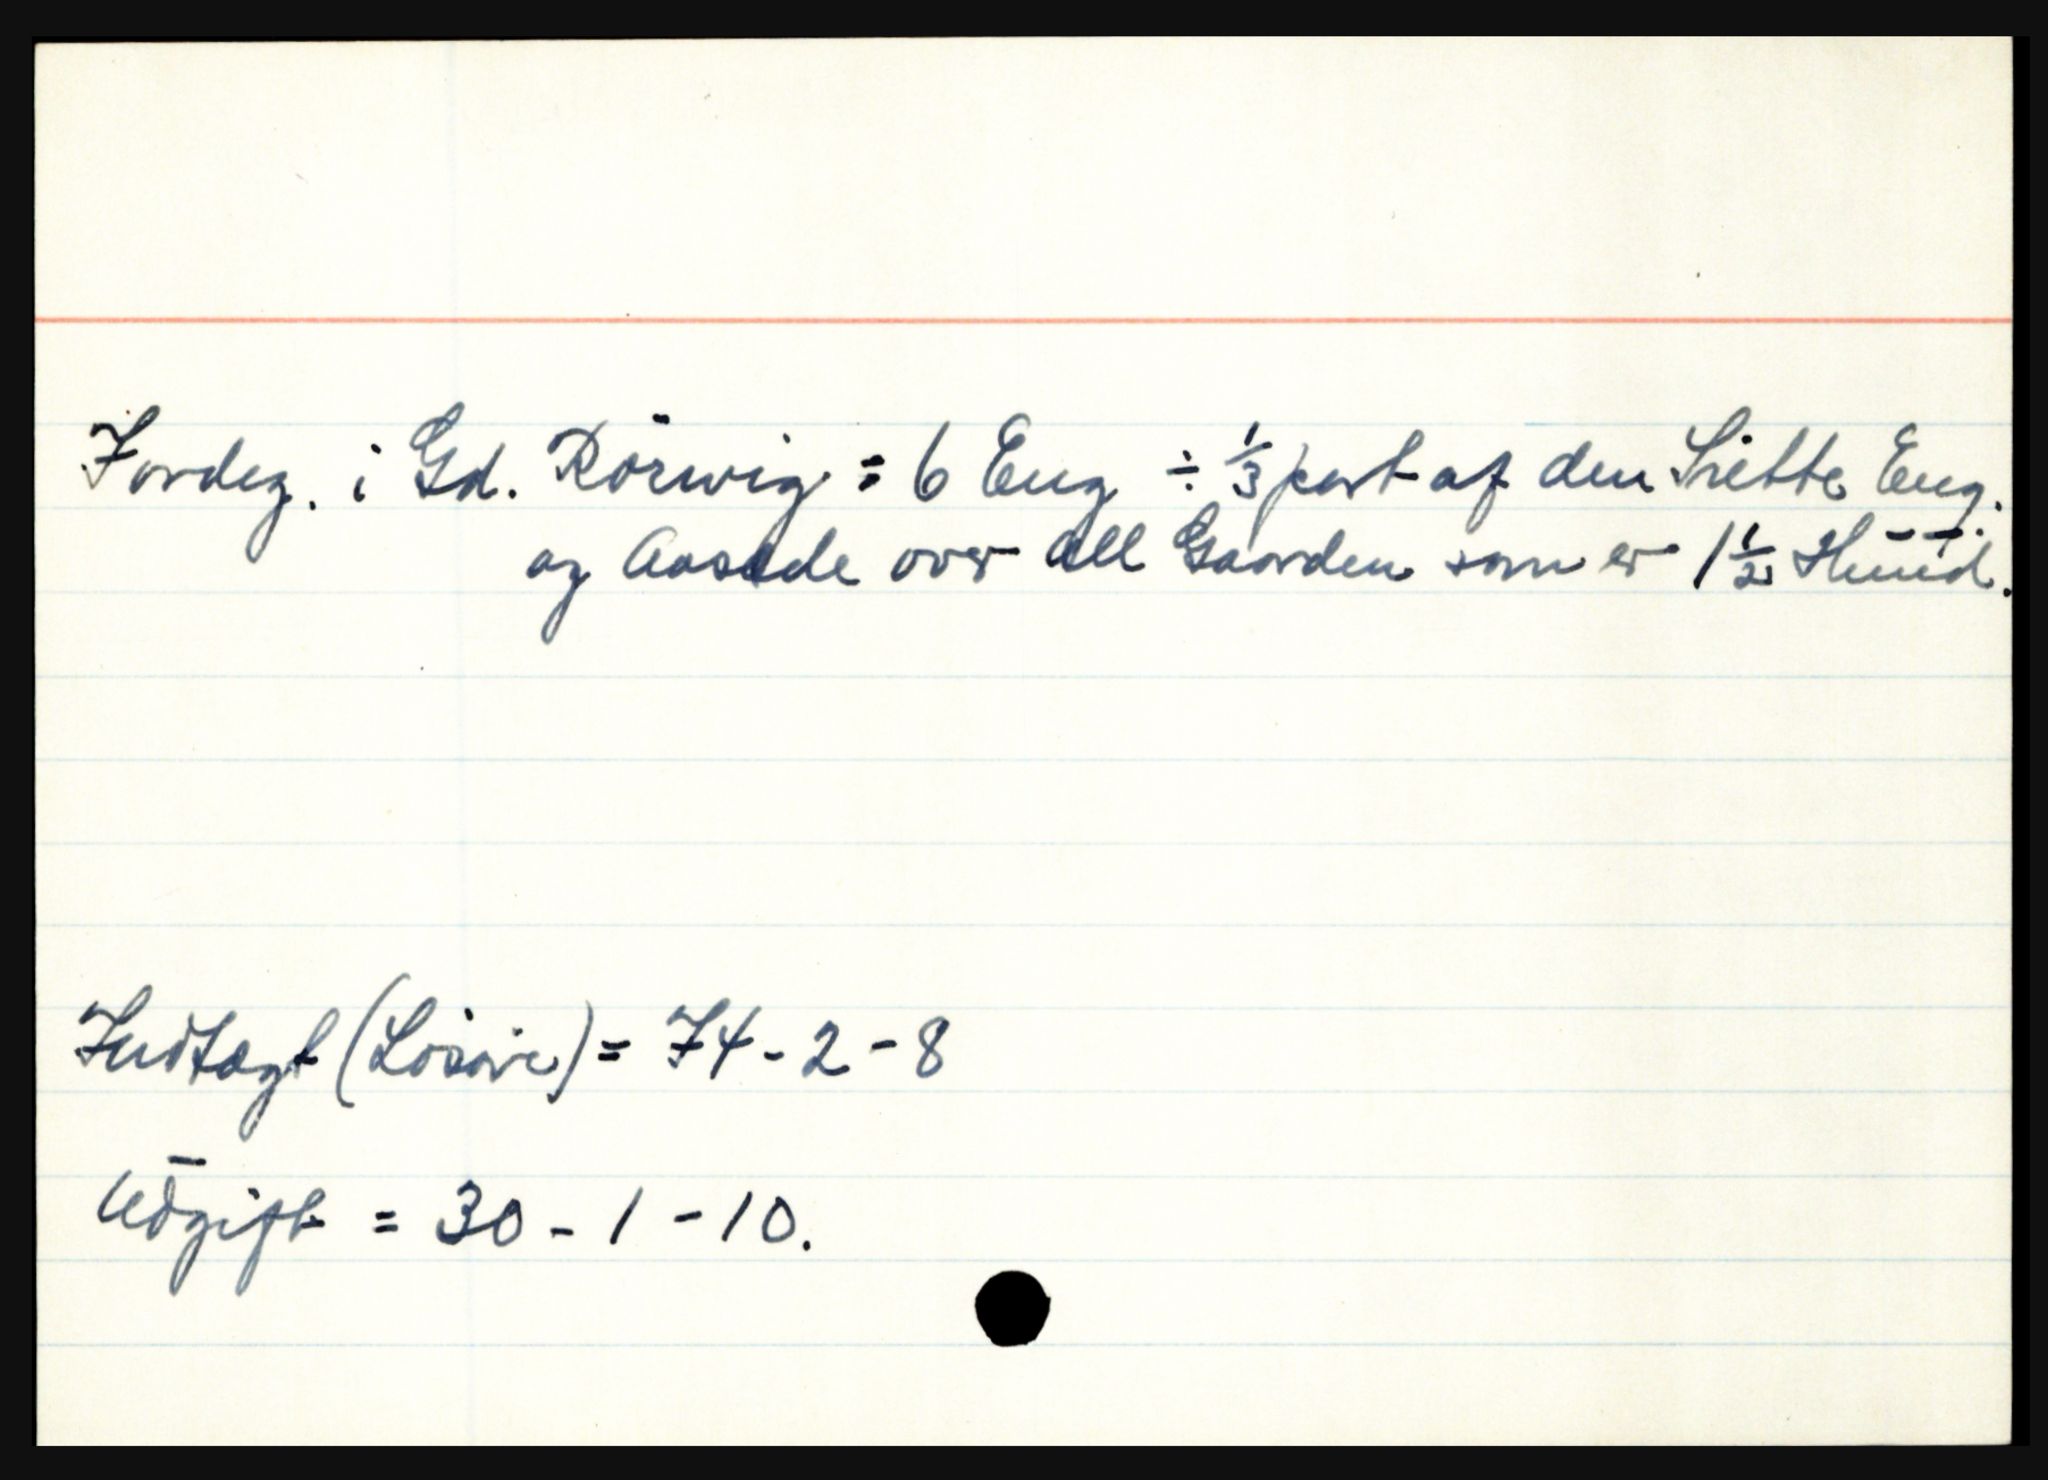 Jordeg. i Gd. Rörwig = 6 Eug ÷ 1/3 part af den Siette Eug.
og Aasæde over all Gaarden som er 1 1/2 Hūūd.
Indtægt (Lösöre) = 74 - 2 - 8
Udgift = 30 - 1 - 10.